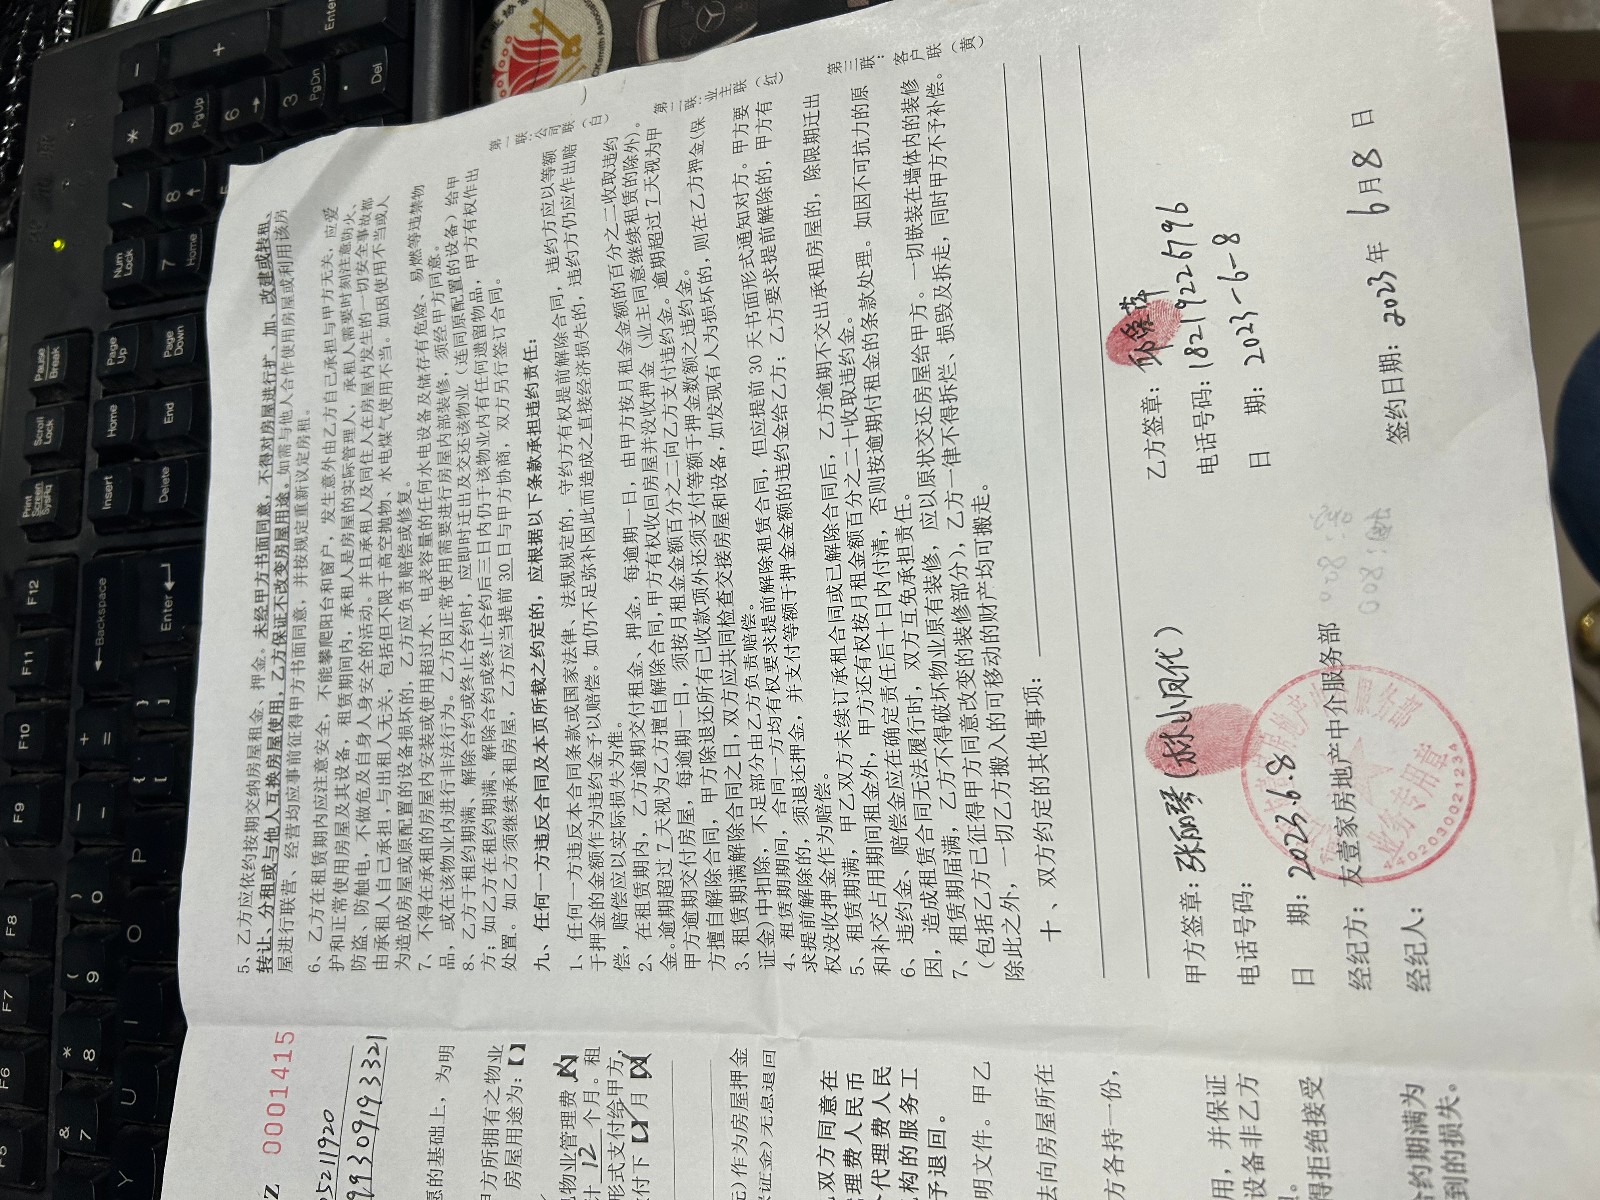 5、乙方应依约按期交纳房屋租金、押金。未经甲方书面同意，不得对房屋进行扩、加、改建或转租、
转让、分租或与他人互换房屋使用，乙方保证不改变房屋用途。如需与他人合作使用房屋或利用该房
屋进行联营、经营均应事前征得甲方书面同意，并按规定重新议定房租。
6、乙方在租赁期内应注意安全，不能攀爬阳台和窗户，发生意外由乙方自己承担与甲方无关，应爱
护和正常使用房屋及其设备，租赁期间内，承租人是房屋的实际管理人，承租人需要时刻注意防火、
防盗、防触电，不做危及自身人身安全的活动。并且承租人及同住人在房屋内发生的一切安全事故都
由承租人自己承担，与出租人无关，包括但不限于高空抛物、水电煤气使用不当。如因使用不当或人
为造成房屋或原配置的设备损坏的，乙方应负责赔偿或修复。
7、不得在承租的房屋内安装或使用超过水、电表容量的任何水电设备及储存有危险、易燃等违禁物
品，或在该物业内进行非法行为。乙方因正常使用需要进行房屋内部装修，须经甲方同意。
8、乙方于租约期满、解除合约或终止合约时，应即时迁出及交还该物业（连同原配置的设备）给甲
方；如乙方在租约期满、解除合约或终止合约后三日内仍于该物业内有任何遗留物品，甲方有权作出
处置。如乙方须继续承租房屋，乙方应当提前 30 日与甲方协商，双方另行签订合同。
九、任何一方违反合同及本页所载之约定的，应根据以下条款承担违约责任：
1、任何一方违反本合同条款或国家法律、法规规定的，守约方有权提前解除合同，违约方应以等额
于押金的金额作为违约金予以赔偿。如仍不足弥补因此而造成之直接经济损失的，违约方仍应作出赔
偿，赔偿应以实际损失为准。
2、在租赁期内，乙方逾期交付租金、押金，每逾期一日，由甲方按月租金金额的百分之二收取违约
金。逾期超过 7 天视为乙方擅自解除合同，甲方有权收回房屋并没收押金（业主同意继续租赁的除外）。
甲方逾期交付房屋，每逾期一日，须按月租金金额百分之二向乙方支付违约金。逾期超过 7 天视为甲
方擅自解除合同，甲方除退还所有已收款项外还须支付等额于押金数额之违约金。
3、租赁期满解除合同之日，双方应共同检查交接房屋和设备，如发现有人为损坏的，则在乙方押金（保
证金）中扣除，不足部分由乙方负责赔偿。
4、租赁期期间，合同一方均有权要求提前解除租赁合同，但应提前 30 天书面形式通知对方。甲方要
求提前解除的，须退还押金，并支付等额于押金金额的违约金给乙方；乙方要求提前解除的，甲方有
权没收押金作为赔偿。
5、租赁期满，甲乙双方未续订承租合同或已解除合同后，乙方逾期不交出承租房屋的，除限期迁出
和补交占用期间租金外，甲方还有权按月租金额百分之二十收取违约金。
6、违约金、赔偿金应在确定责任后十日内付清，否则按逾期付租金的条款处理。如因不可抗力的原
因，造成租赁合同无法履行时，双方互免承担责任。
7、租赁期届满，乙方不得破坏物业原有装修，应以原状交还房屋给甲方。一切嵌装在墙体内的装修
（包括乙方已征得甲方同意改变的装修部分），乙方一律不得拆烂、损毁及拆走，同时甲方不予补偿。
除此之外，一切乙方搬入的可移动的财产均可搬走。
十、双方约定的其他事项：
第一联：公司联（白）
第二联：业主联（红）
第三联：客户联（黄）
甲方签章：张丽琴（林小凤代）
电话号码：
日 期：2023.6.8
经纪方：友壹家房地产中介服务部
经纪人：
乙方签章：
电话号码：18219226796
日 期：2023-6-8
签约日期：2023 年 6 月 8 日
房地产中介服务部
业务专用章
Z 0001415
5211920
993091933321
愿的基础上，为明
甲方所拥有之物业
房屋用途为：【】
物业管理费
计 12 个月。租
形式支付给甲方，
付下【】月
元）作为房屋押金
证金）无息退回
双方同意在
理费人民币
代理费人民
构的服务工
予退回。
明文件。甲乙
法向房屋所在
方各持一份，
用，并保证
设备非乙方
得拒绝接受
合约期满为
到的损失。
Enter
+
-
PgUp
9
6
3
PgDn
Del
*
/
8
Num Lock
7
Home
Pause Break
Page Up
Page Down
Scroll Lock
Home
End
Print Screen SysRq
Insert
Delete
F12
F11
F10
F9
F8
F7
F6
F5
Backspace
Enter
P
O
I
U
Y